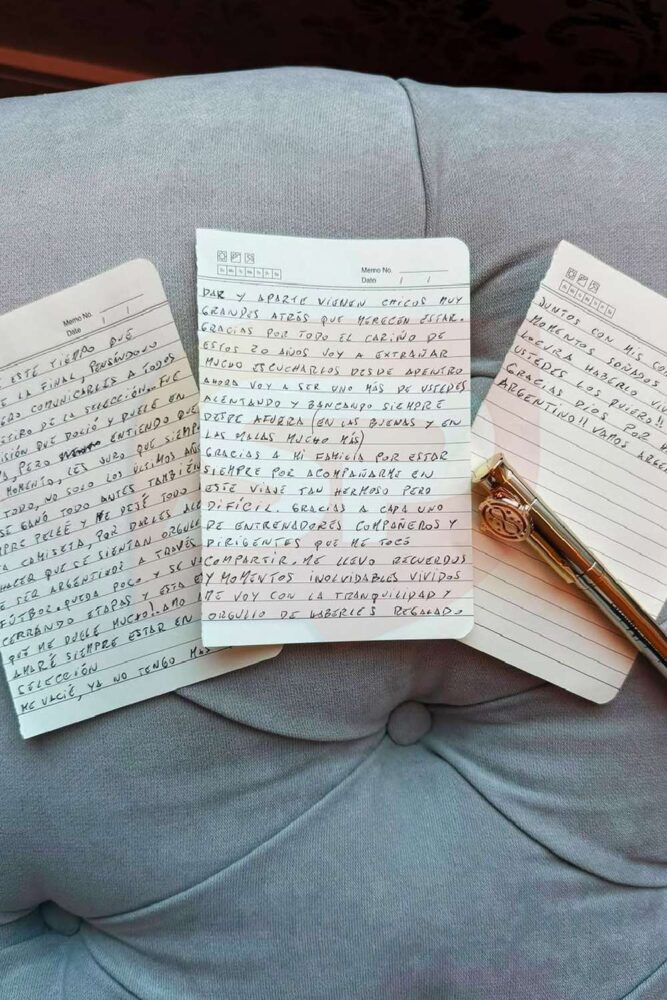 Memo No.
Date / /
ESTE TIEMPO QUE
LA FINAL, PENSÁNDOLO
COMUNICARLES A TODOS
RETIRO DE LA SELECCIÓN. FUE
ISIÓN QUE DOLIÓ Y DUELE EN
PERO ENTIENDO QUE
MOMENTO, LES JURO QUE SIEMP
TODO, NO SOLO LOS ÚLTIMOS AÑ
SE GANÓ TODO ANTES TAMBIÉN
MPRE PELEÉ Y ME DEJÉ TODO
CAMISETA, POR DARLES ALE
HACER QUE SE SIENTAN ORGULL
E SER ARGENTINOS A TRAVÉS
FÚTBOL. QUEDA POCO Y SE VA
CERRANDO ETAPAS Y ESTA E
QUE ME DUELE MUCHO! AMO
AMARÉ SIEMPRE ESTAR EN
SELECCIÓN
ME VACIÉ, YA NO TENGO MÁS
Memo No.
Date / /
DAR Y APARTE VIENEN CHICOS MUY
GRANDES ATRÁS QUE MERECEN ESTAR.
GRACIAS POR TODO EL CARIÑO DE
ESTOS 20 AÑOS VOY A EXTRAÑAR
MUCHO ESCUCHARLOS DESDE ADENTRO
AHORA VOY A SER UNO MÁS DE USTEDES
ALENTANDO Y BANCANDO SIEMPRE
DESDE AFUERA (EN LAS BUENAS Y EN
LAS MALAS MUCHO MÁS)
GRACIAS A MI FAMILIA POR ESTAR
SIEMPRE POR ACOMPAÑARME EN
ESTE VIAJE TAN HERMOSO PERO
DIFÍCIL. GRACIAS A CADA UNO
DE ENTRENADORES COMPAÑEROS Y
DIRIGENTES QUE ME TOCÓ
COMPARTIR. ME LLEVO RECUERDOS
Y MOMENTOS INOLVIDABLES VIVIDOS
ME VOY CON LA TRANQUILIDAD Y
ORGULLO DE HABERLES REGALADO
JUNTOS CON MIS CO
MOMENTOS SOÑADOS
LOCURA HABERLO VI
USTEDES LOS QUIERO!!
GRACIAS DIOS POR
ARGENTINO!! VAMOS ARGE